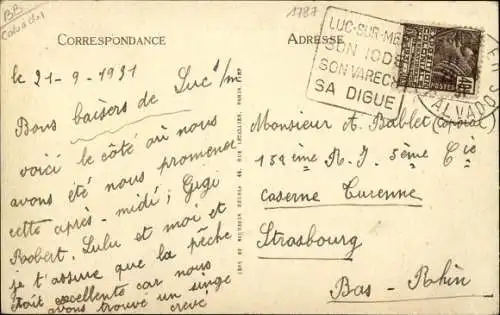 BB
Calvados
1787
CORRESPONDANCE
ADRESSE
LUC-SUR-MER
SON IODE
SON VARECH
SA DIGUE
CALVADOS
le 21-9-1931
Bons baisers de Luc s/m
voici le côté où nous
avons été nous promener
cette après-midi; Gigi
Robert, Lulu et moi et
je t'assure que la pêche
était excellente car nous
avons trouvé un singe
crevé
Monsieur A. Bablet (Caporal)
152ème R.I. 5ème Cie
Caserne Turenne
Strasbourg
Bas-Rhin